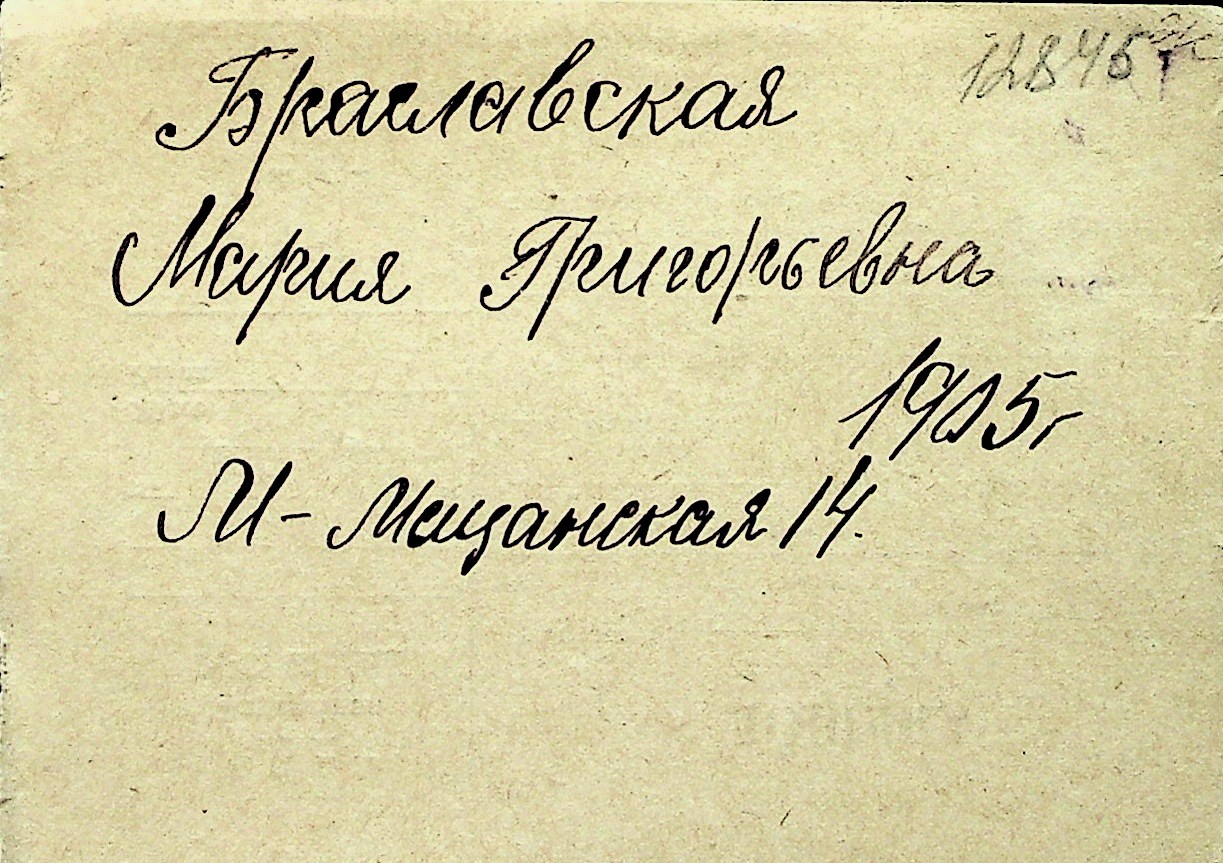 12845
Браславская
Мария Григорьевна
1905г
М-Мещанская 14.